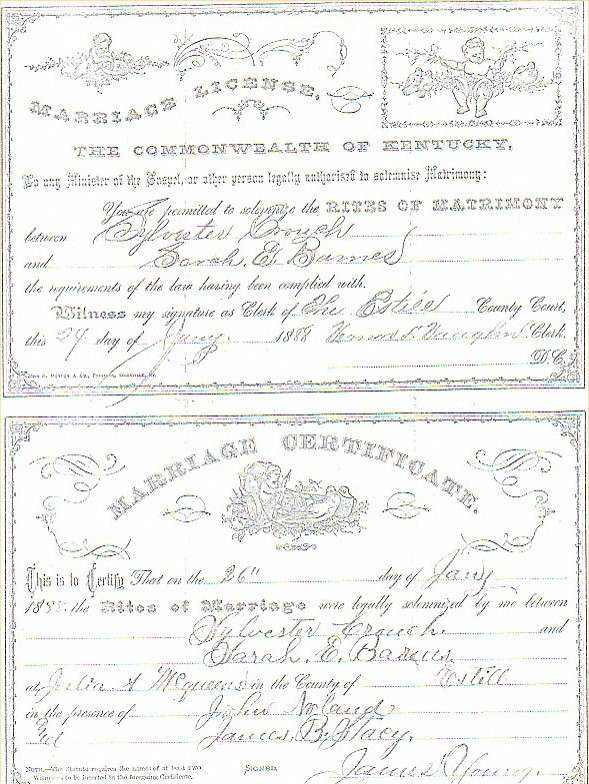 MARRIAGE LICENSE,
THE COMMONWEALTH OF KENTUCKY,
To any Minister of the Gospel, or other person legally authorised to solemnise Matrimony:
You are permitted to solemnize the RITES OF MATRIMONY
between Sylvester Crouch
and Sarah. E. Barnes
the requirements of the law having been complied with.
Witness my signature as Clerk of The Estill County Court,
this 24 day of Jany. 1888 Vaughn Clerk
D. C.
MARRIAGE CERTIFICATE.
This is to Certify That on the 26" day of Jany
188 the Rites of Marriage were legally solemnized by me between
Sylvester Crouch. and
Sarah. E. Barnes
at Julia A Mcqueens in the County of Estill
in the presence of John Noland
James. B. Stacy.
NOTE.—The Statute requires the names of at least two
Witnesses to be inserted in the foregoing Certificate.
SIGNED James Young